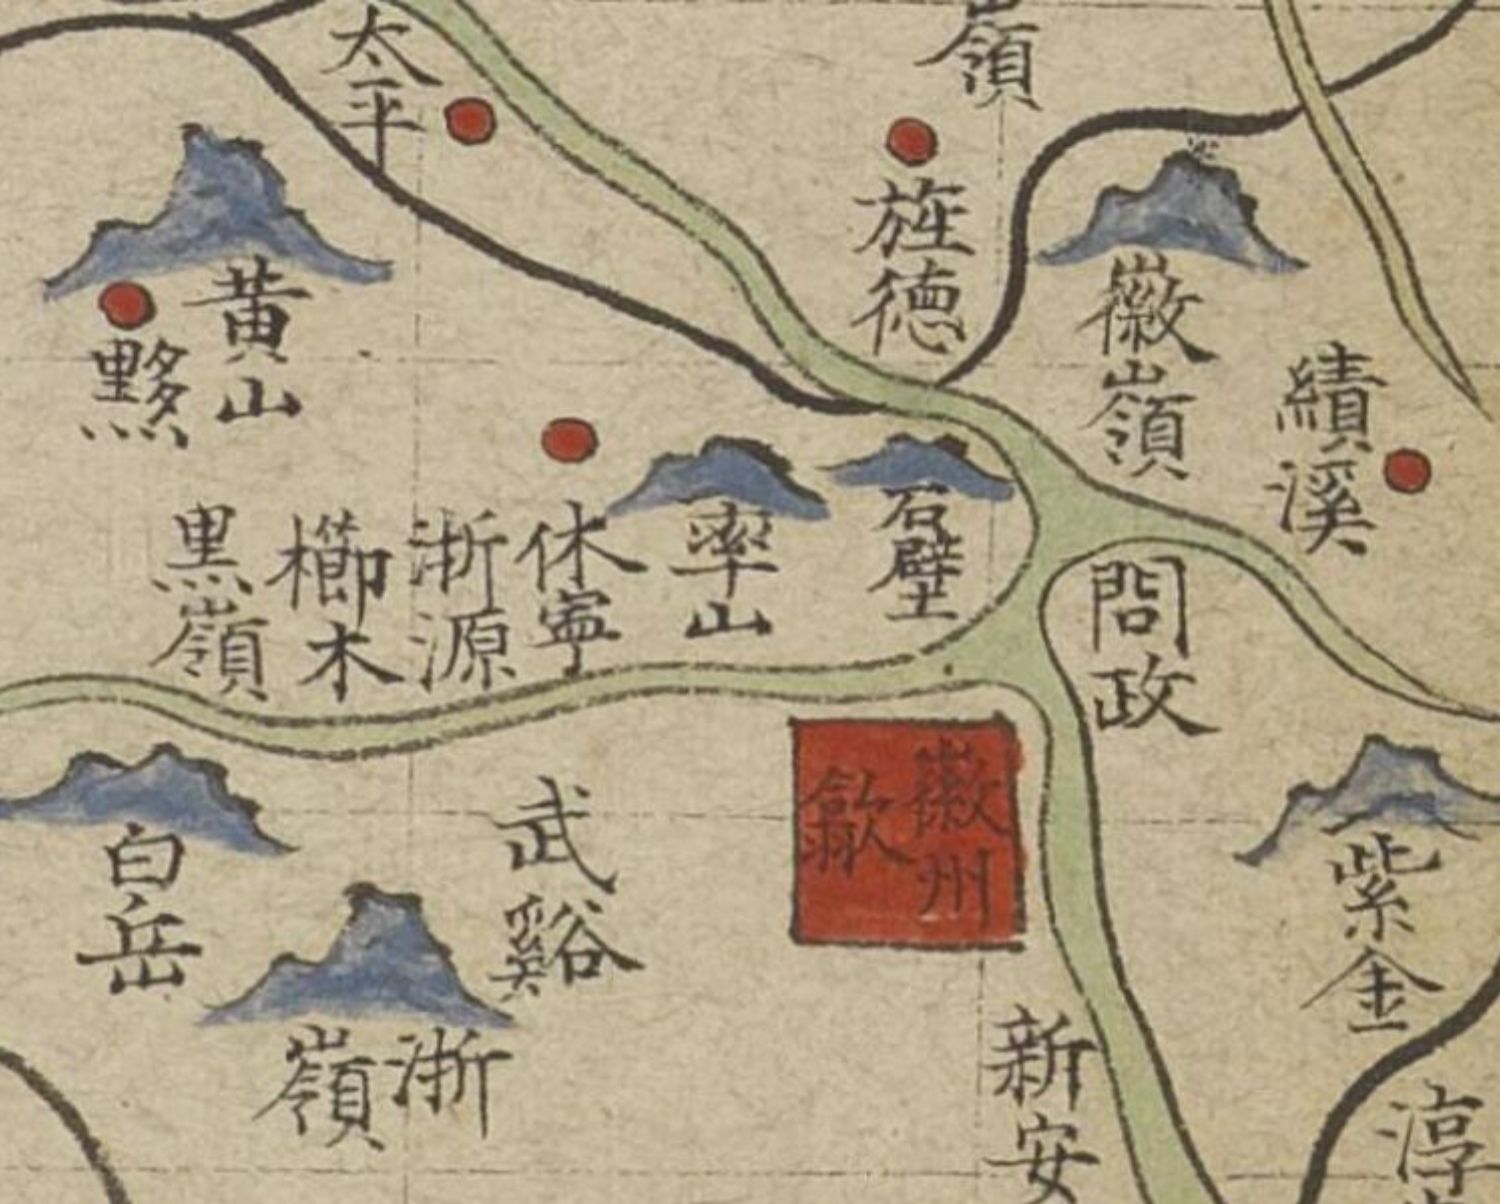 太平
嶺
旌德
徽嶺
績溪
黃山
黟
石壁
率山
休寧
浙源
櫛木
黒嶺
問政
徽州
歙
紫金
武谿
白岳
浙嶺
新安
淳